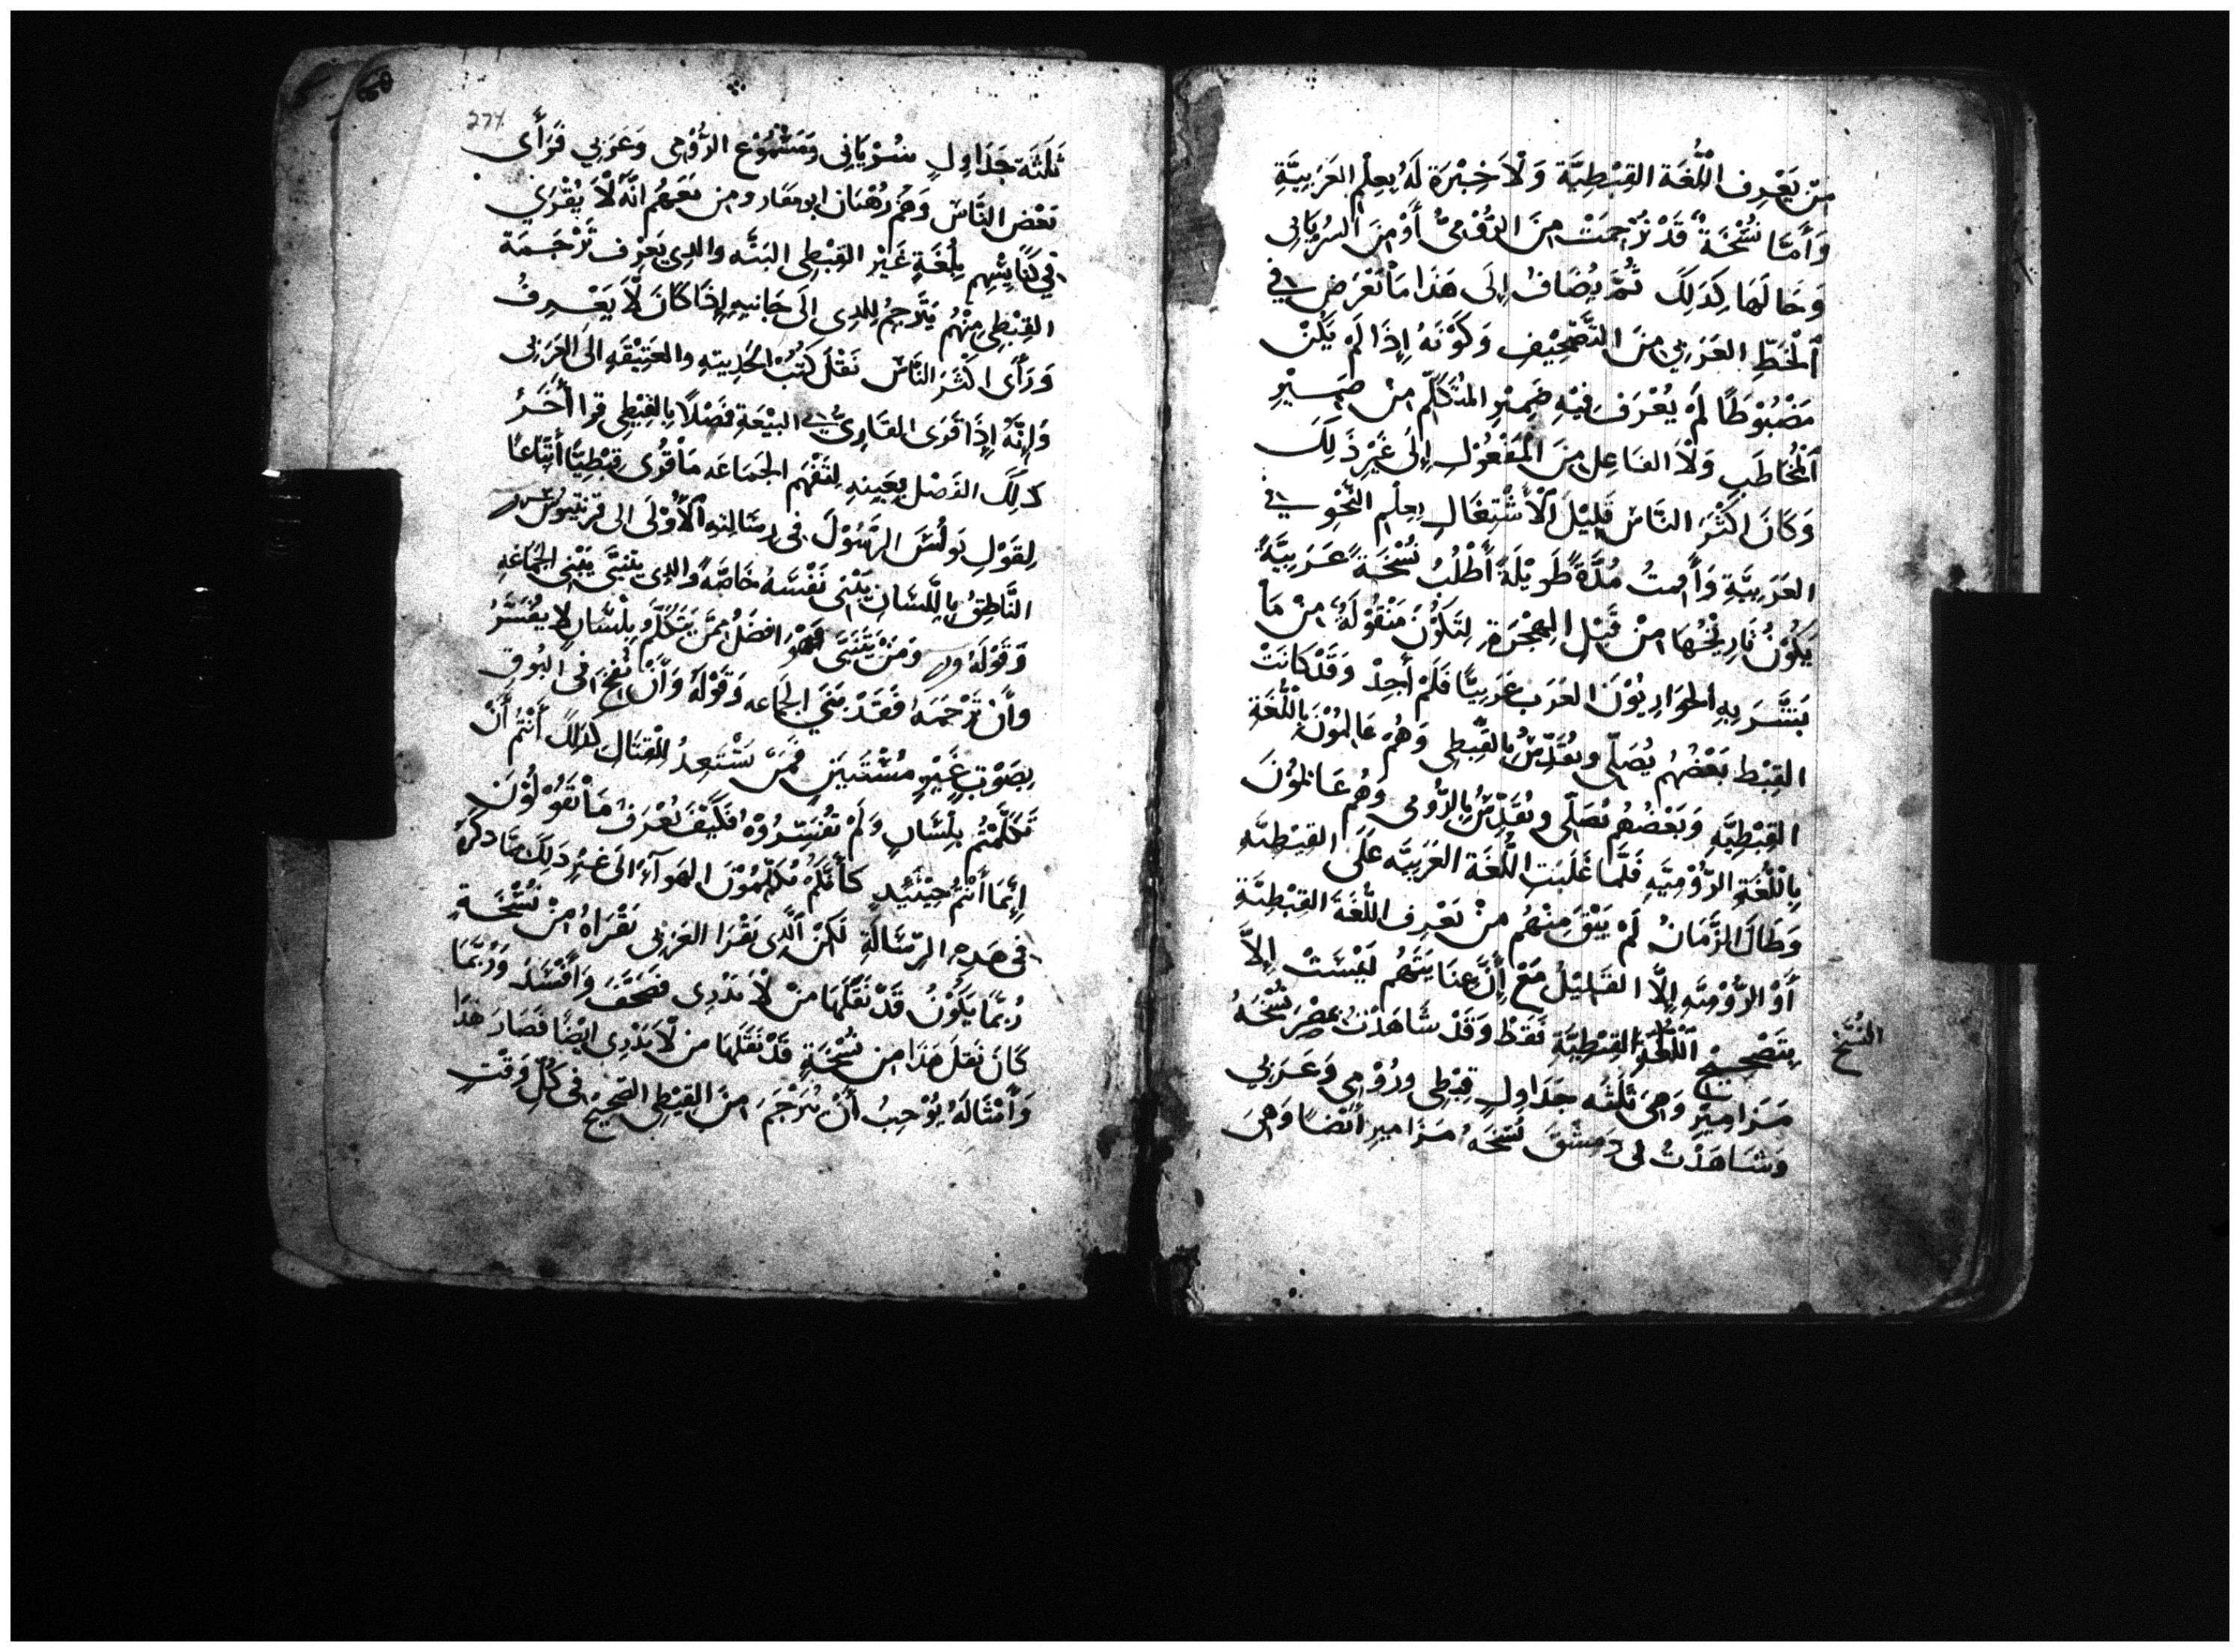 مَنْ يَعْرِف اللُّغَة القِبْطِيَّة وَلَا خِبْرَة لَهُ بِعِلْمِ العَرَبِيَّةِ
وَأَمَّا نُسْخَةٌ قَدْ تُرْجِمَتْ مِنَ الرُّوْمِيّ أَوْ مِنَ السُرْيَانِي
وَحَالهَا كَذلِكَ ثُمَّ يُضَافُ إِلَى هَذَا مَا يَعْرَض فِي
اَلْخَطِّ العَرَبِي مِنَ التَّصْحِيْفِ وَكَوْنَهُ إِذَا لَمْ يَكُنْ
مَضْبُوْطًا لَمْ يُعْرَف فِيْهِ ضَمِيْرِ المُتَكَلّم مِنْ ضَمِيْرِ
اَلْمُخَاطَبِ وَلَا الفَاعِل مِنَ المَفْعُوْلِ إِلَى غَيْرِ ذَلِكَ
وَكَانَ اكْثَرَ النَّاسِ قَلِيْلَ اَلْأَشْتِغَالِ بِعِلْمِ النَّحْوِ فِي
العَرَبِيَّةِ وَأَقمتُ مُدَّةً طَوِيْلَةً أَطْلُبُ نُسْخَةً عَرَبِيَّةً
يَكُوْنُ تَارِيْخُهَا مِنْ قَبْلِ الهِجْرَةِ لِتَكُوْنَ مَنْقُوْلَةً مِنْ مَا
بَشَّرَ بِهِ الحَوَارِيُوْنَ العَرَب عَرَبِيًّا فَلَمْ أَجِدْ وَقَدْ كَانَتْ
القِبْط بَعْضُهُم يُصَلّي ويُقَدِّسُ بِالقِبْطِي وَهُمْ عَالِمُوْنَ بِاللُّغَةِ
القِبْطِيَّةِ وَبَعْضُهُم يُصَلّي ويُقَدِّسُ بِالرُّومِي وَهُم عَالمُوْنَ
بِاللُّغَةِ الرُّوْمِيَّهِ فَلَمَّا غَلَبَتِ اللُّغَة العَرَبِيَّه عَلَى القِبْطِيَّهِ
وَطَالَ الزَّمَانُ لَمْ يَبْقَ مِنْهُم مَنْ يَعْرِف اللُّغَةَ القِبْطِيَّةِ
أَوْ الرُّوْمِيَّهِ إِلَّا القَلِيْلُ مَعْ إِنَّ عِنَايَتَهُم لَيْسَتْ إِلَّا
بِتَصْحِيْحِ القِبْطِيَّةِ فَقَطْ وَقَدْ شَاهَدْتُ بِمِصْرَ نُسْخَهُ
النُسَخ
مَزَامِيْرِ وَهِيَ ثَلثَه جَدَاوِلِ قِبْطِي ورُوْمِي وَعَرَبِي
وَشَاهَدْتُ فى دِمَشْقَ نُسْخَهُ مَزَامِيرِ أَيْضًا وَهِيَ
274
ثَلَثَة جَدَاوِلِ سُرْيَانِي وَمَشْمُوْع الرُّوْمِى وَعَرَبِي فَرَأَى
بَعْض النَّاسِ وَهُم رُهْبَان ابو مقار ومن مَعَهُم انَّهُ لَا يُقْرَي
فِي كَنَايِسِهِم بِلُغَةٍ غَيْرِ القِبْطِى البَتَّه والدى يَعْرِف تَرْجَمَة
القِبْطِي مِنْهُم يُتَرْجِمُ لِلدِى إلَى جَانِبِهِ إِذَا كَانَ لَا يَعْرِفُ
وَرَأَى اكْثَرَ النَّاسِ نَقْلَ كُتُبُ الحَدِيثِهِ والعَتِيْقَهِ الَى العَرَبِى
وَإِنَّهُ إِذَا قَرَى القَارِئُ فِي البِيْعَةِ فَصْلًا بِالقِبْطِى قرا أَخَرُ
ذلِكَ الفَصْل بِعَيْنِهِ لِتَفْهَم الجَمَاعَه مَا قُرِى قِبْطِيًّا أتّبَاعًا
لِقَوْلِ بَولُسَ الرَّسُوْلَ فى رِسَالتِهِ اَلْأُوْلَى الى قرنتيوس
النَّاطِقُ بِاللِّسَانِ يَبْنِى نَفْسَهُ خَاصَّةً والدى يتنبَّى يَبْنِى الجَمَاعَه
وَقَوْلهُ وَمَنْ يَتَنَبَّى فَهُو افضَلُ مِمَّن يَتَكَلَّم بِلِسَانٍ لا يُفَسَّرُ
وأَنْ تَرْجَمَهُ فَقَدْ بَنَي الجَمَاعه وَقَوْلَهُ وَأَنْ نُفِخَ فى البُوق
بِصَوْتٍ غَيْرِ مُسْتَبينٍ فَمَنْ يَسْتَعِدُ لِلْقِتَالِ كَذلِكَ أَنْتُم أَنْ
تَكَلَّمْتُم بِلِسَانٍ وَلَمْ تُفَسِّرُوْهُ فَكَيْفَ يُعْرَفُ مَا تَقُوْلُوْنَ
إِنَّمَا أَنْتُم حِيْنَئِيْدٍ كَأَنَّكُمْ تُكَلِّمُوْنَ الهَوآءَ الَى غَيْرِ دَلِكَ مِمَّا دكَرَهُ
فى هَدِهِ الرِّسَالَةِ لَكِن اَلَّدِى يَقْرَا العَرَبِى يَقْرَاهُ مِنْ نُسْخَةٍ
رُبَّمَا يَكُوْنُ قَدْ نَقَلَهَا مَنْ لَا يَدْرِى فصَحَّفَ وَافْسَدَ وَرُبَّمَا
كَانَ نَقلَ هَذَا مِن نُسْخَةٍ قَدْ نَقَلَهَا مَن لَا يَدْرِى ايْضًا فَصَارَ هَذَا
وَأَمْثَالَهُ يُوْجِبُ أَنْ يُتَرْجَمَ مِنَ القِبْطِى الصَحِيْحِ فى كُلِّ وَقْتٍ